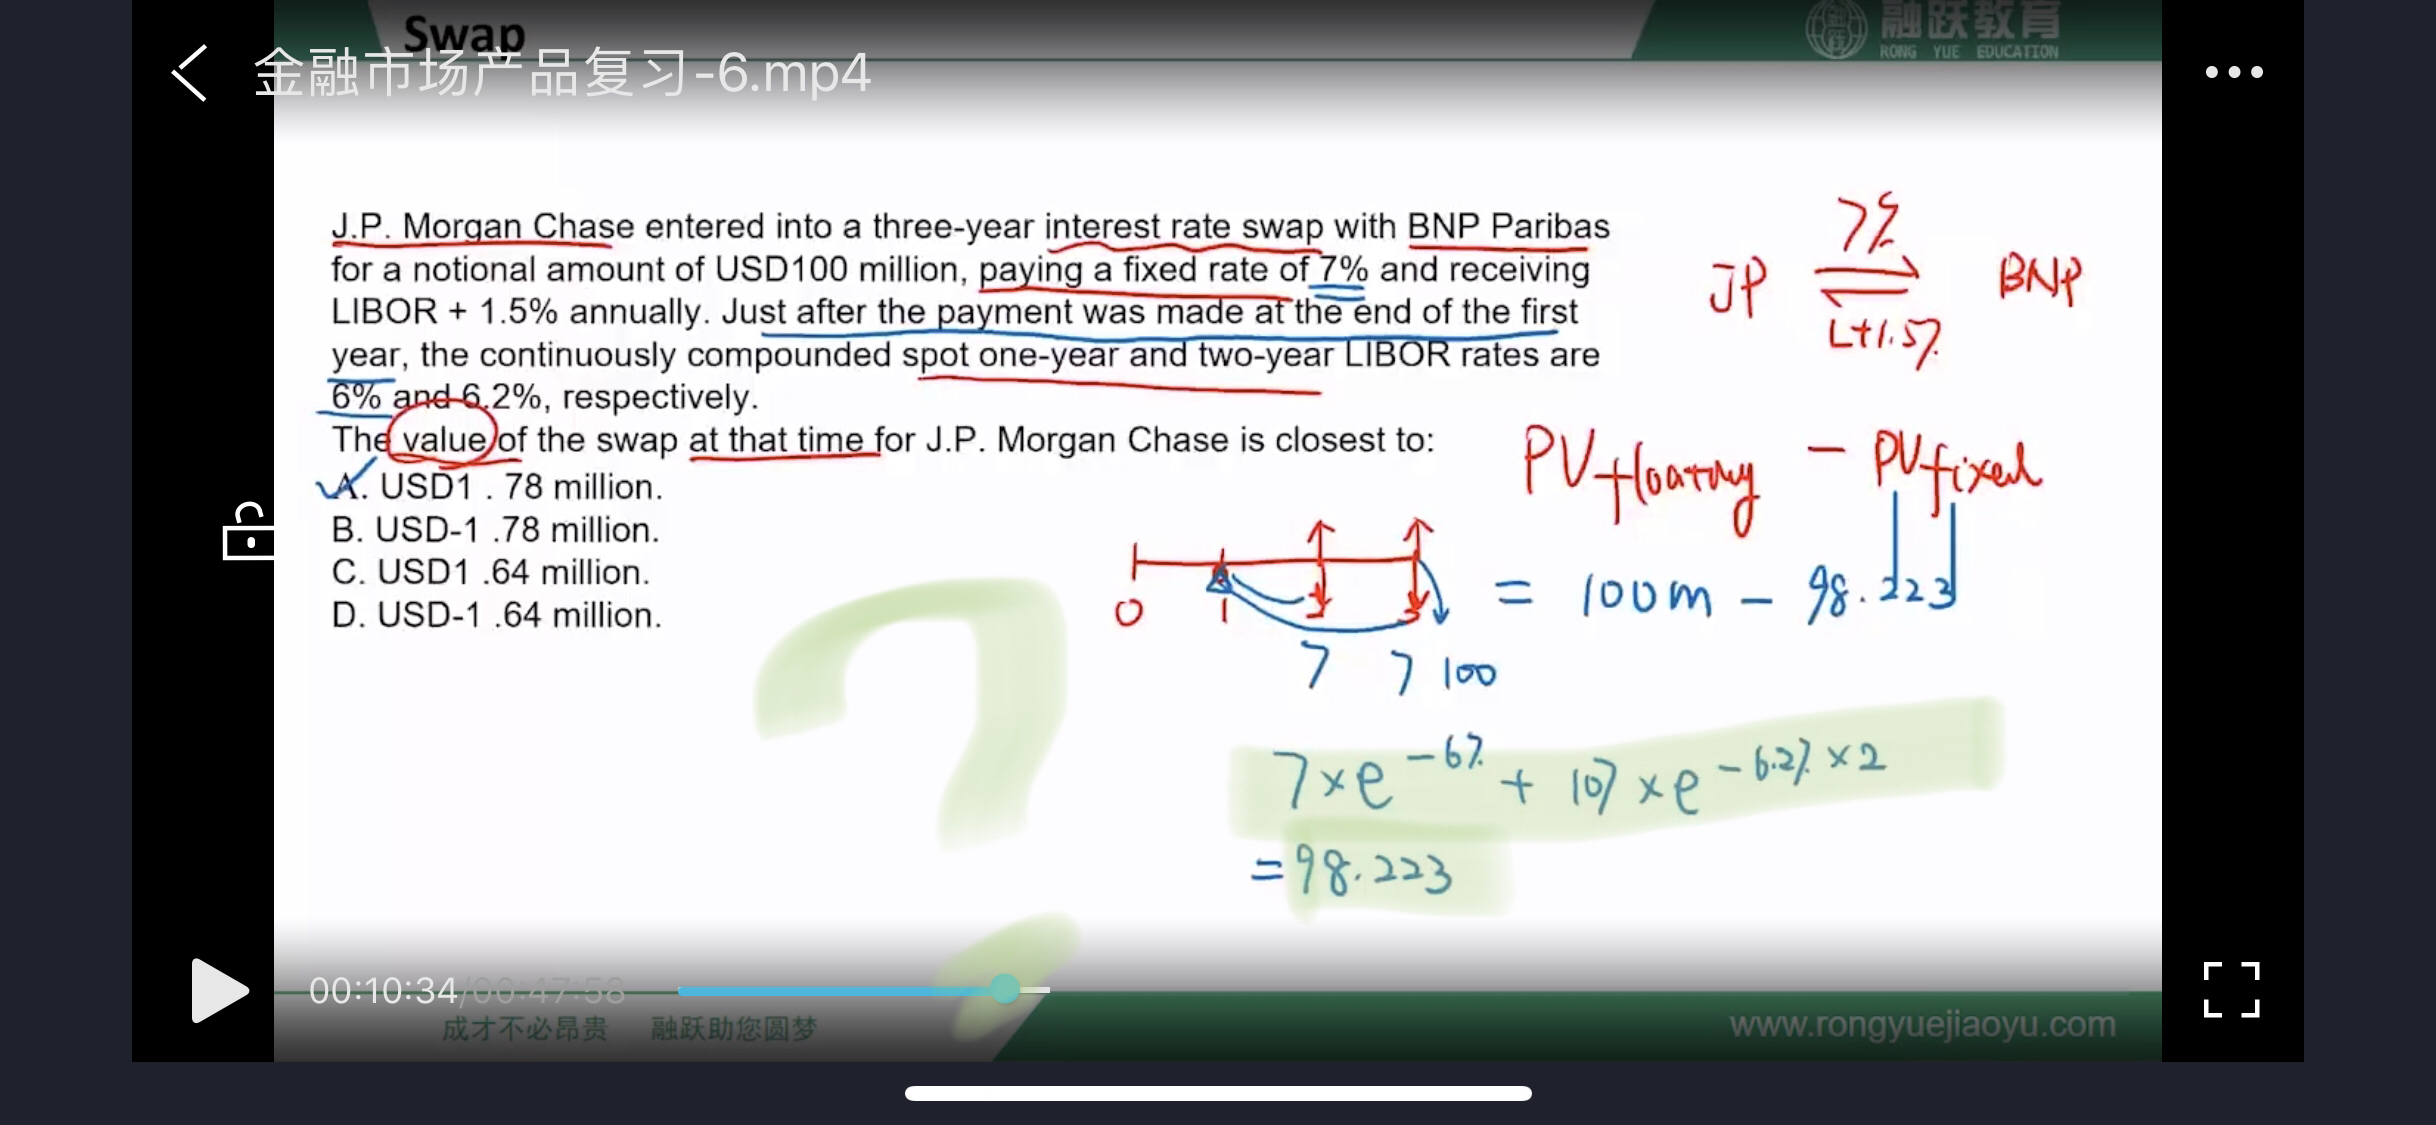 Swap
融跃教育
RONG YUE EDUCATION
金融市场产品复习-6.mp4
J.P. Morgan Chase entered into a three-year interest rate swap with BNP Paribas
for a notional amount of USD100 million, paying a fixed rate of 7% and receiving
LIBOR + 1.5% annually. Just after the payment was made at the end of the first
year, the continuously compounded spot one-year and two-year LIBOR rates are
6% and 6.2%, respectively.
The value of the swap at that time for J.P. Morgan Chase is closest to:
A. USD1 . 78 million.
B. USD-1 .78 million.
C. USD1 .64 million.
D. USD-1 .64 million.
7%
JP BNP
L+1.5%
PV floating - PV fixed
= 100m - 98.223
0 1 2 3
7 7 100
7×e^-6% + 107×e^-6.2%×2
=98.223
00:10:34/00:47:58
成才不必昂贵 融跃助您圆梦
www.rongyuejiaoyu.com